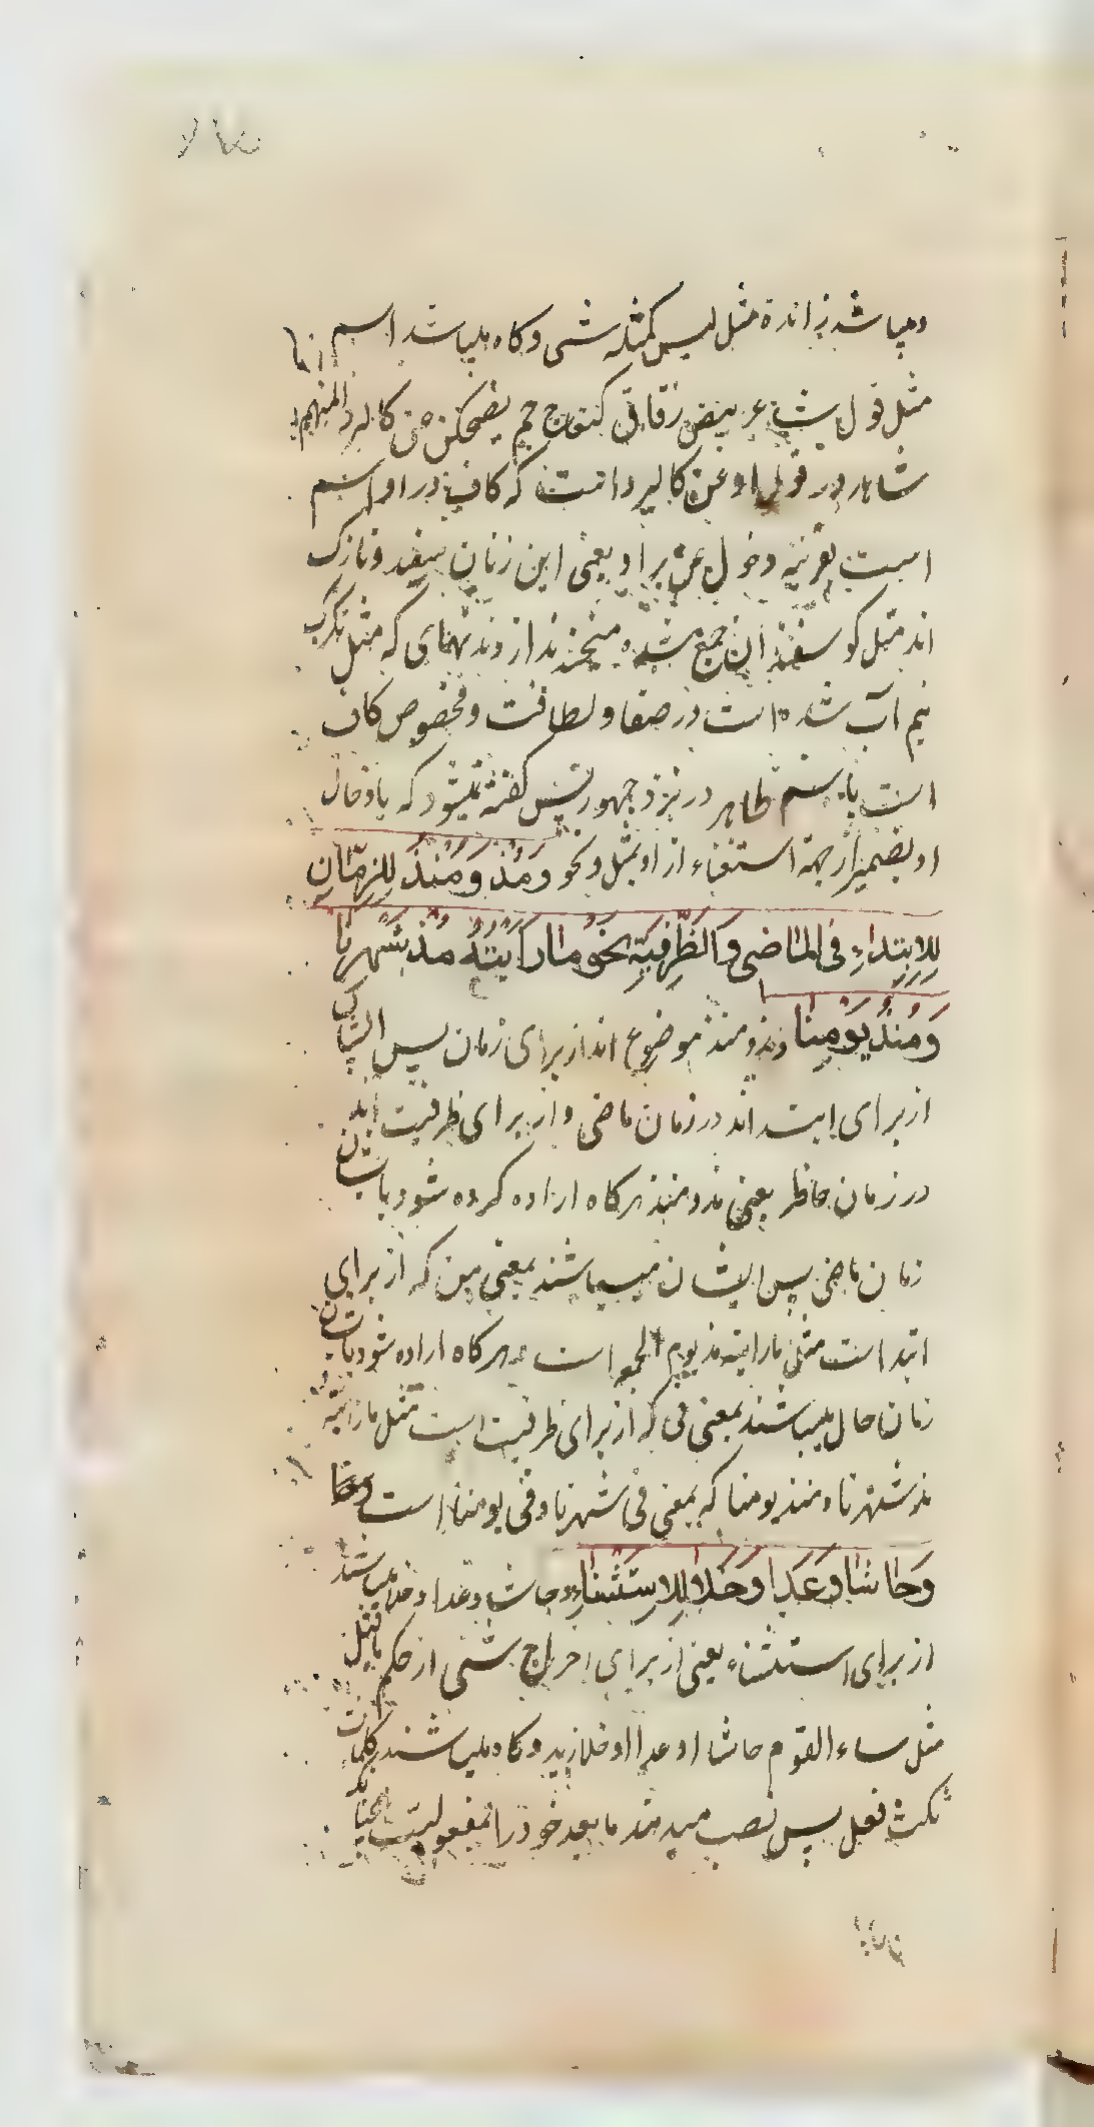 و میباشد زائدة مثل لیس کمثله شی و کاه میباشد اسم
مثل قول شاعر بیض کنعاج جم یضحکن عن کالبرد المنهم
شاهد در قول او عن کالبرد است که کاف در او اسم
است بقرینه دخول عن بر او یعنی این زنان سفید و نازک
اند مثل کوسفندان جمع شده میخندند از دندنهای که مثل تکرک
نیم آب شده است در صفا و لطافت و مخصوص کاف
است باسم ظاهر در نزد جمهور پس کفته نمیشود که یا و حال
او بضمیر از جهة استغناء از او بمثل و نحو وَمُذْ وَمُنْذُ لِلزَّمَانِ
لِلاِبْتِداءِ فی الماضی وَالظَّرْفِیَّةِ نحو ما رَاَیْتُهُ مُذْ شَهْرِنا
وَمُنْذُ یَوْمِنا و مذ و منذ موضوع اند از برای زمان پس ایشان
از برای ابتداند در زمان ماضی و از برای ظرفیت اند
در زمان حاظر یعنی مذ و منذ هرکاه اراده کرده شود باایشان
زمان ماضی پس ایشان میباشند بمعنی من که از برای
ابتداست مثل ما رایته مذ یوم الجمعه است و هرکاه اراده شود باایشان
زمان حال میباشند بمعنی فی که از برای ظرفیت است مثل ما رایته
مذ شهرنا و منذ یومنا که بمعنی فی شهرنا و فی یومنا است
وَحاشا وَعَدا وَخَلا لِلاِسْتِثْناءِ و حاشا و عدا و خلا میباشند
از برای استثناء یعنی از برای اخراج شیی از حکم ماقبل
مثل ساء القوم حاشا او عدا او خلا زید و کاه میباشند کلمات
ثلث فعل پس نصب میدهند ما بعد خود را بمفعولیت